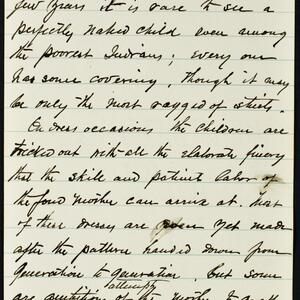 few years it is rare to see a
perfectly naked child even among
the poorest Indians; every one
has some covering, though it may
be only the most ragged of shirts.
On dress occasions the children are
tricked out with all the elaborate finery
that the skill and patient labor of
the fond mother can arrive at. Most
of these dresses are even yet made
after the pattern handed down from
generation to generation. but some
attempts
are of the